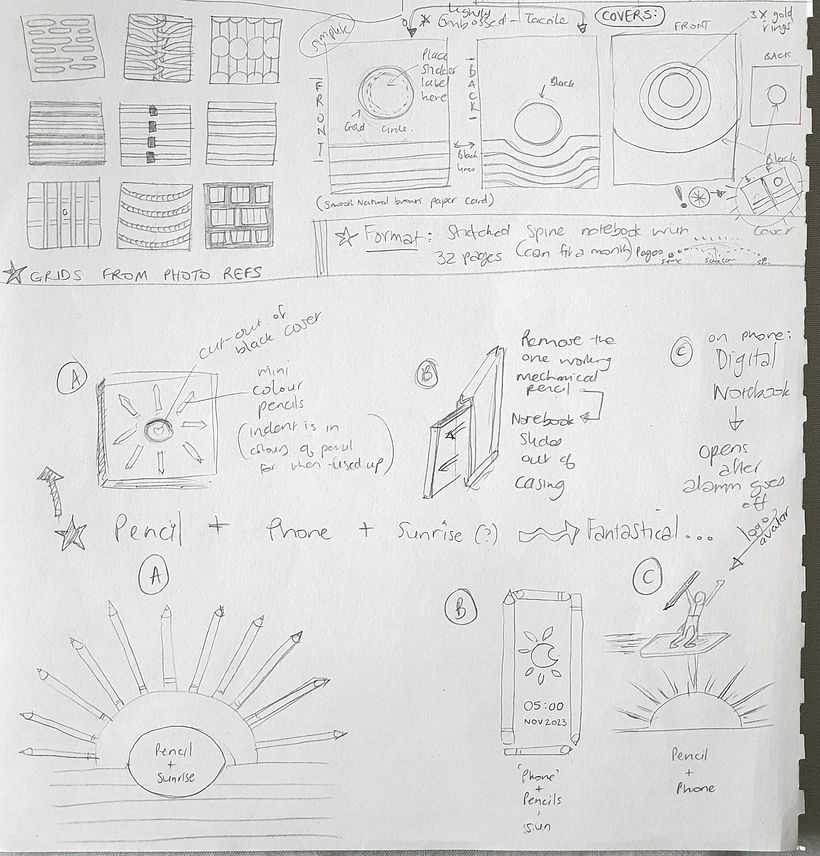 Lightly
Embossed - Tactile
COVERS:
3 x gold
rings
simple
FRONT
BACK
FRONT
BACK
Place
Sticker
label
here
Gold Circle.
Black
Black
lines
Black
(Smooth Natural brown paper card)
! 
B F
Cover
Format: Stitched Spine notebook with
32 pages (can fit a month) Pages
GRIDS FROM PHOTO REFS
A
cut-out of
black cover
mini
colour
pencils
(indent is in
colours of pencil
for when used up)
B
Remove the
one working
mechanical
pencil
Notebook
slides
out of
casing
C
on phone:
Digital
Notebook
Opens
after
alarm goes
off
Pencil + Phone + Sunrise (?) Fantastical...
logo?
avatar
A
Pencil
+
Sunrise
B
05:00
NOV 2023
'Phone'
+
Pencils
+
Sun
C
Pencil
+
Phone